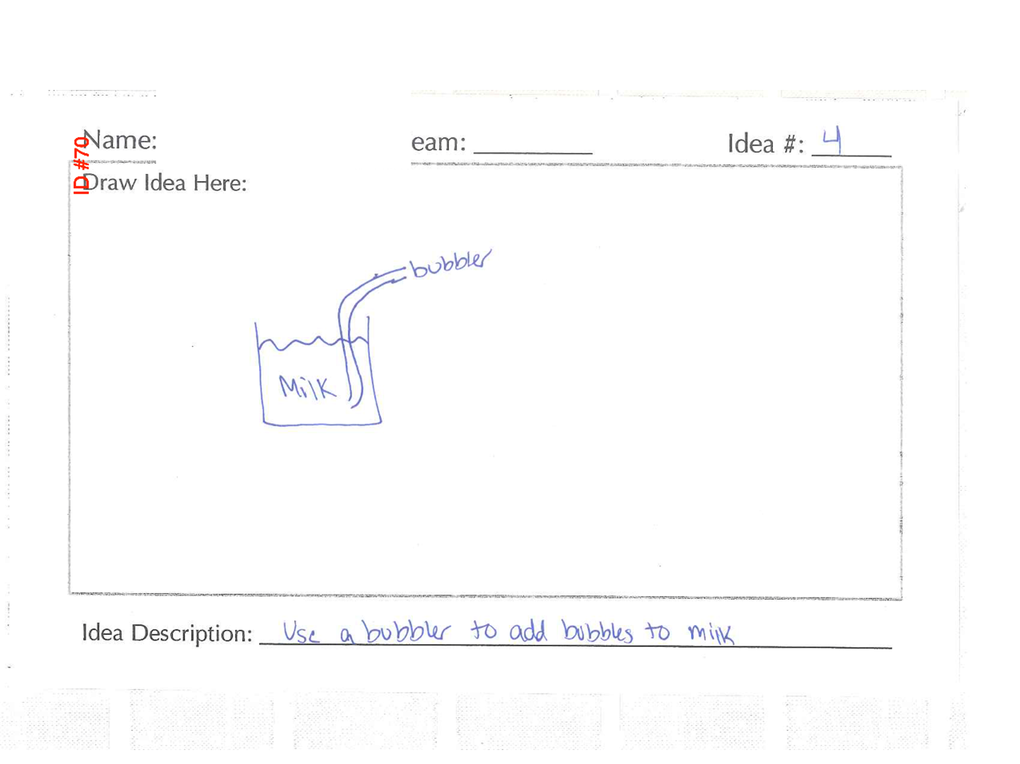 ID #70
Name: eam: Idea #: 4
Draw Idea Here:
bubbler
Milk
Idea Description: Use a bubbler to add bubbles to milk